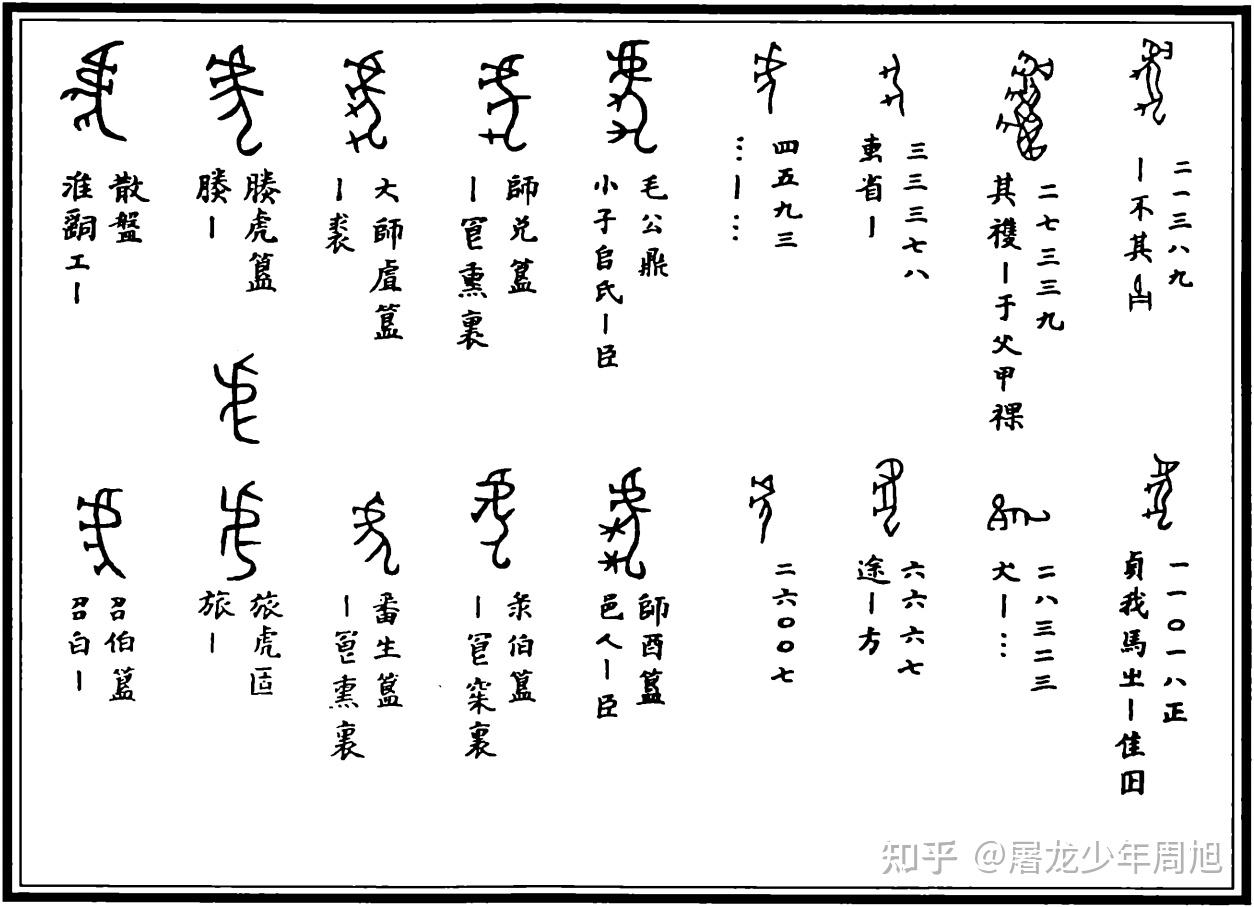 二一三八九
丨不其
一一〇一八正
貞我馬㞢丨隹囚
二七三三九
其䙴丨于父甲祼
二八三二三
犬丨…
三三三七八
叀省丨
六六六七
途丨方
四五九三
…丨…
二六〇〇七
毛公鼎
小子𠂤氏丨臣
師酉簋
邑人丨臣
師兌簋
丨冟熏裏
彔伯簋
丨冟窠裏
大師虘簋
丨裘
番生簋
丨冟熏裏
滕虎簋
滕丨
旅虎𠤳
旅丨
散盤
淮𤔲工丨
召伯簋
召白丨
知乎 @屠龙少年周旭